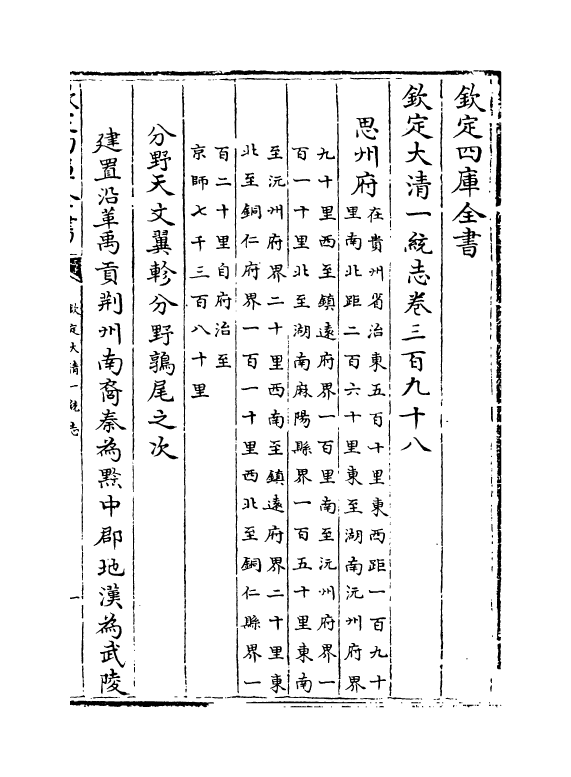 欽定四庫全書
欽定大清一統志卷三百九十八
思州府
在貴州省治東五百十里東西距一百九十
里南北距二百六十里東至湖南沅州府界
九十里西至鎮遠府界一百里南至沅州府界一
百一十里北至湖南麻陽縣界一百五十里東南
至沅州府界二十里西南至鎮遠府界二十里東
北至銅仁府界一百一十里西北至銅仁縣界一
百二十里自府治至
京師七千三百八十里
分野天文翼軫分野鶉尾之次
建置沿革禹貢荆州南裔秦為黔中郡地漢為武陵
欽定四庫全書
欽定大清一統志
一